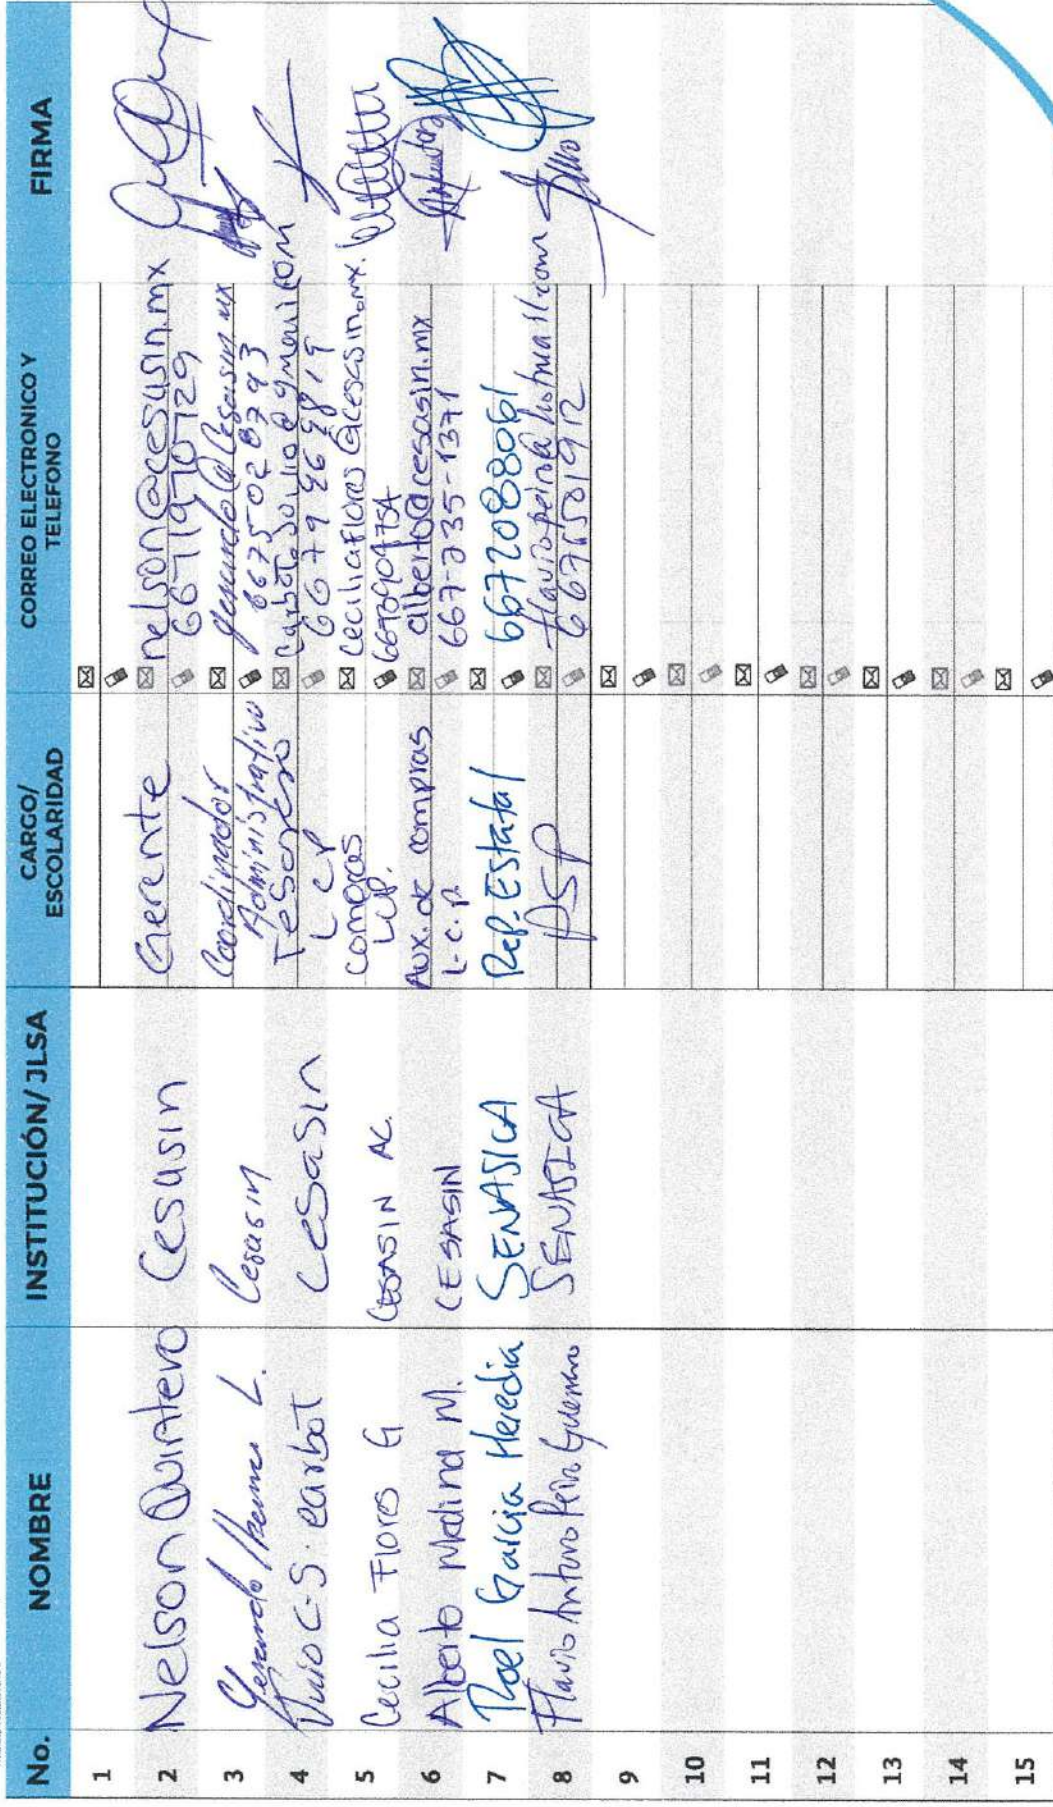 No. NOMBRE INSTITUCIÓN/ JLSA CARGO/ ESCOLARIDAD CORREO ELECTRONICO Y TELEFONO FIRMA
1
2 Nelson Quintero Cesasin Gerente nelson@cesasin.mx
6671970729
3 Gerardo L. Cesasin Coordinador Administrativo gerardo@cesasin.mx
6675028793
4 C. S. carbot Cesasin Tesorero
L CP
667 9 96 9819
5 Cecilia Flores G CESASIN AC. Compras ceciliaflores@cesasin.mx.
LCP.
6 Alberto Medina M. CESASIN Aux. de compras alberto@cesasin.mx
L.C.P. 667-235-1371
7 Roel García Heredia SENASICA Rep. Estatal 6672088061
8 Flavio Arturo Peña Guerrero SENASICA
6675501912
9
10
11
12
13
14
15